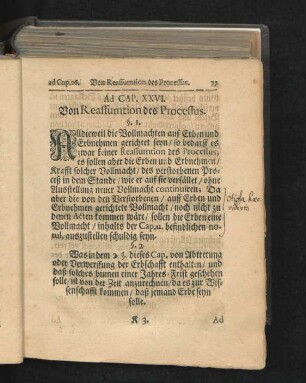 ad Cap. 26. Von Reassumtion des Processus. 77
Ad CAP. XXVI.
Von Reassumtion des Processus.
§. 1.
Alldieweil die Vollmachten auff Erben und
Erbnehmen gerichtet seyn / so bedarff es
zwar keiner Reassumtion des Processus,
es sollen aber die Erben und Erbnehmen /
Krafft solcher Vollmacht / des verstorbenen Pro-
ceß in dem Stande / wie er auff sie verfället / ohne
Ausstellung neuer Vollmacht continuiren. Da
aber die von den Verstorbenen / auff Erben und
Erbnehmen gerichtete Vollmacht / noch nicht zu
denen Acten kommen wäre / sollen die Erben eine
Vollmacht / inhalts der Cap. befindlichen no-
tul, auszustellen schuldig seyn.
§. 2.
Was in dem 2 §. dieses Cap. von Abtretung
oder Verwerffung der Erbschafft enthalten / und
daß solches binnen einer Jahres-Frist geschehen
solle / ist von der Zeit anzurechnen / da es zur Wis-
senschafft kommen / daß jemand Erbe seyn
solle.
K 3. Ad